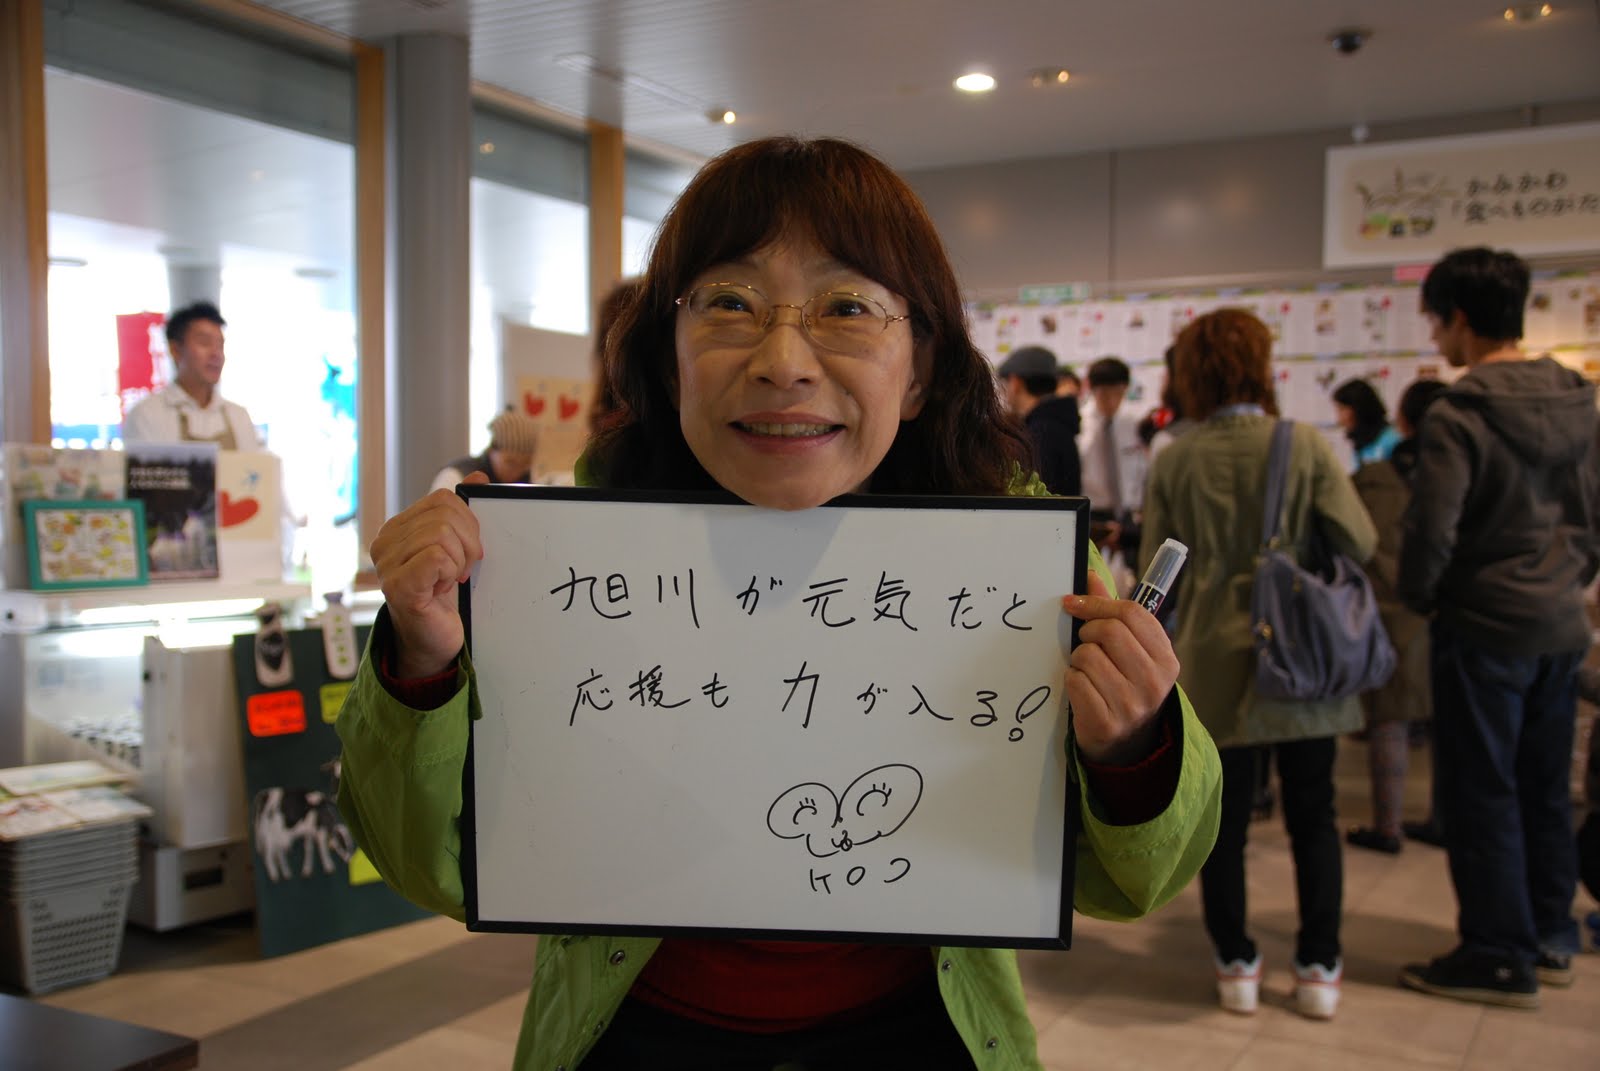 旭川が元気だと
応援も力が入る!
KOJ
かみかわ
「食べものがた